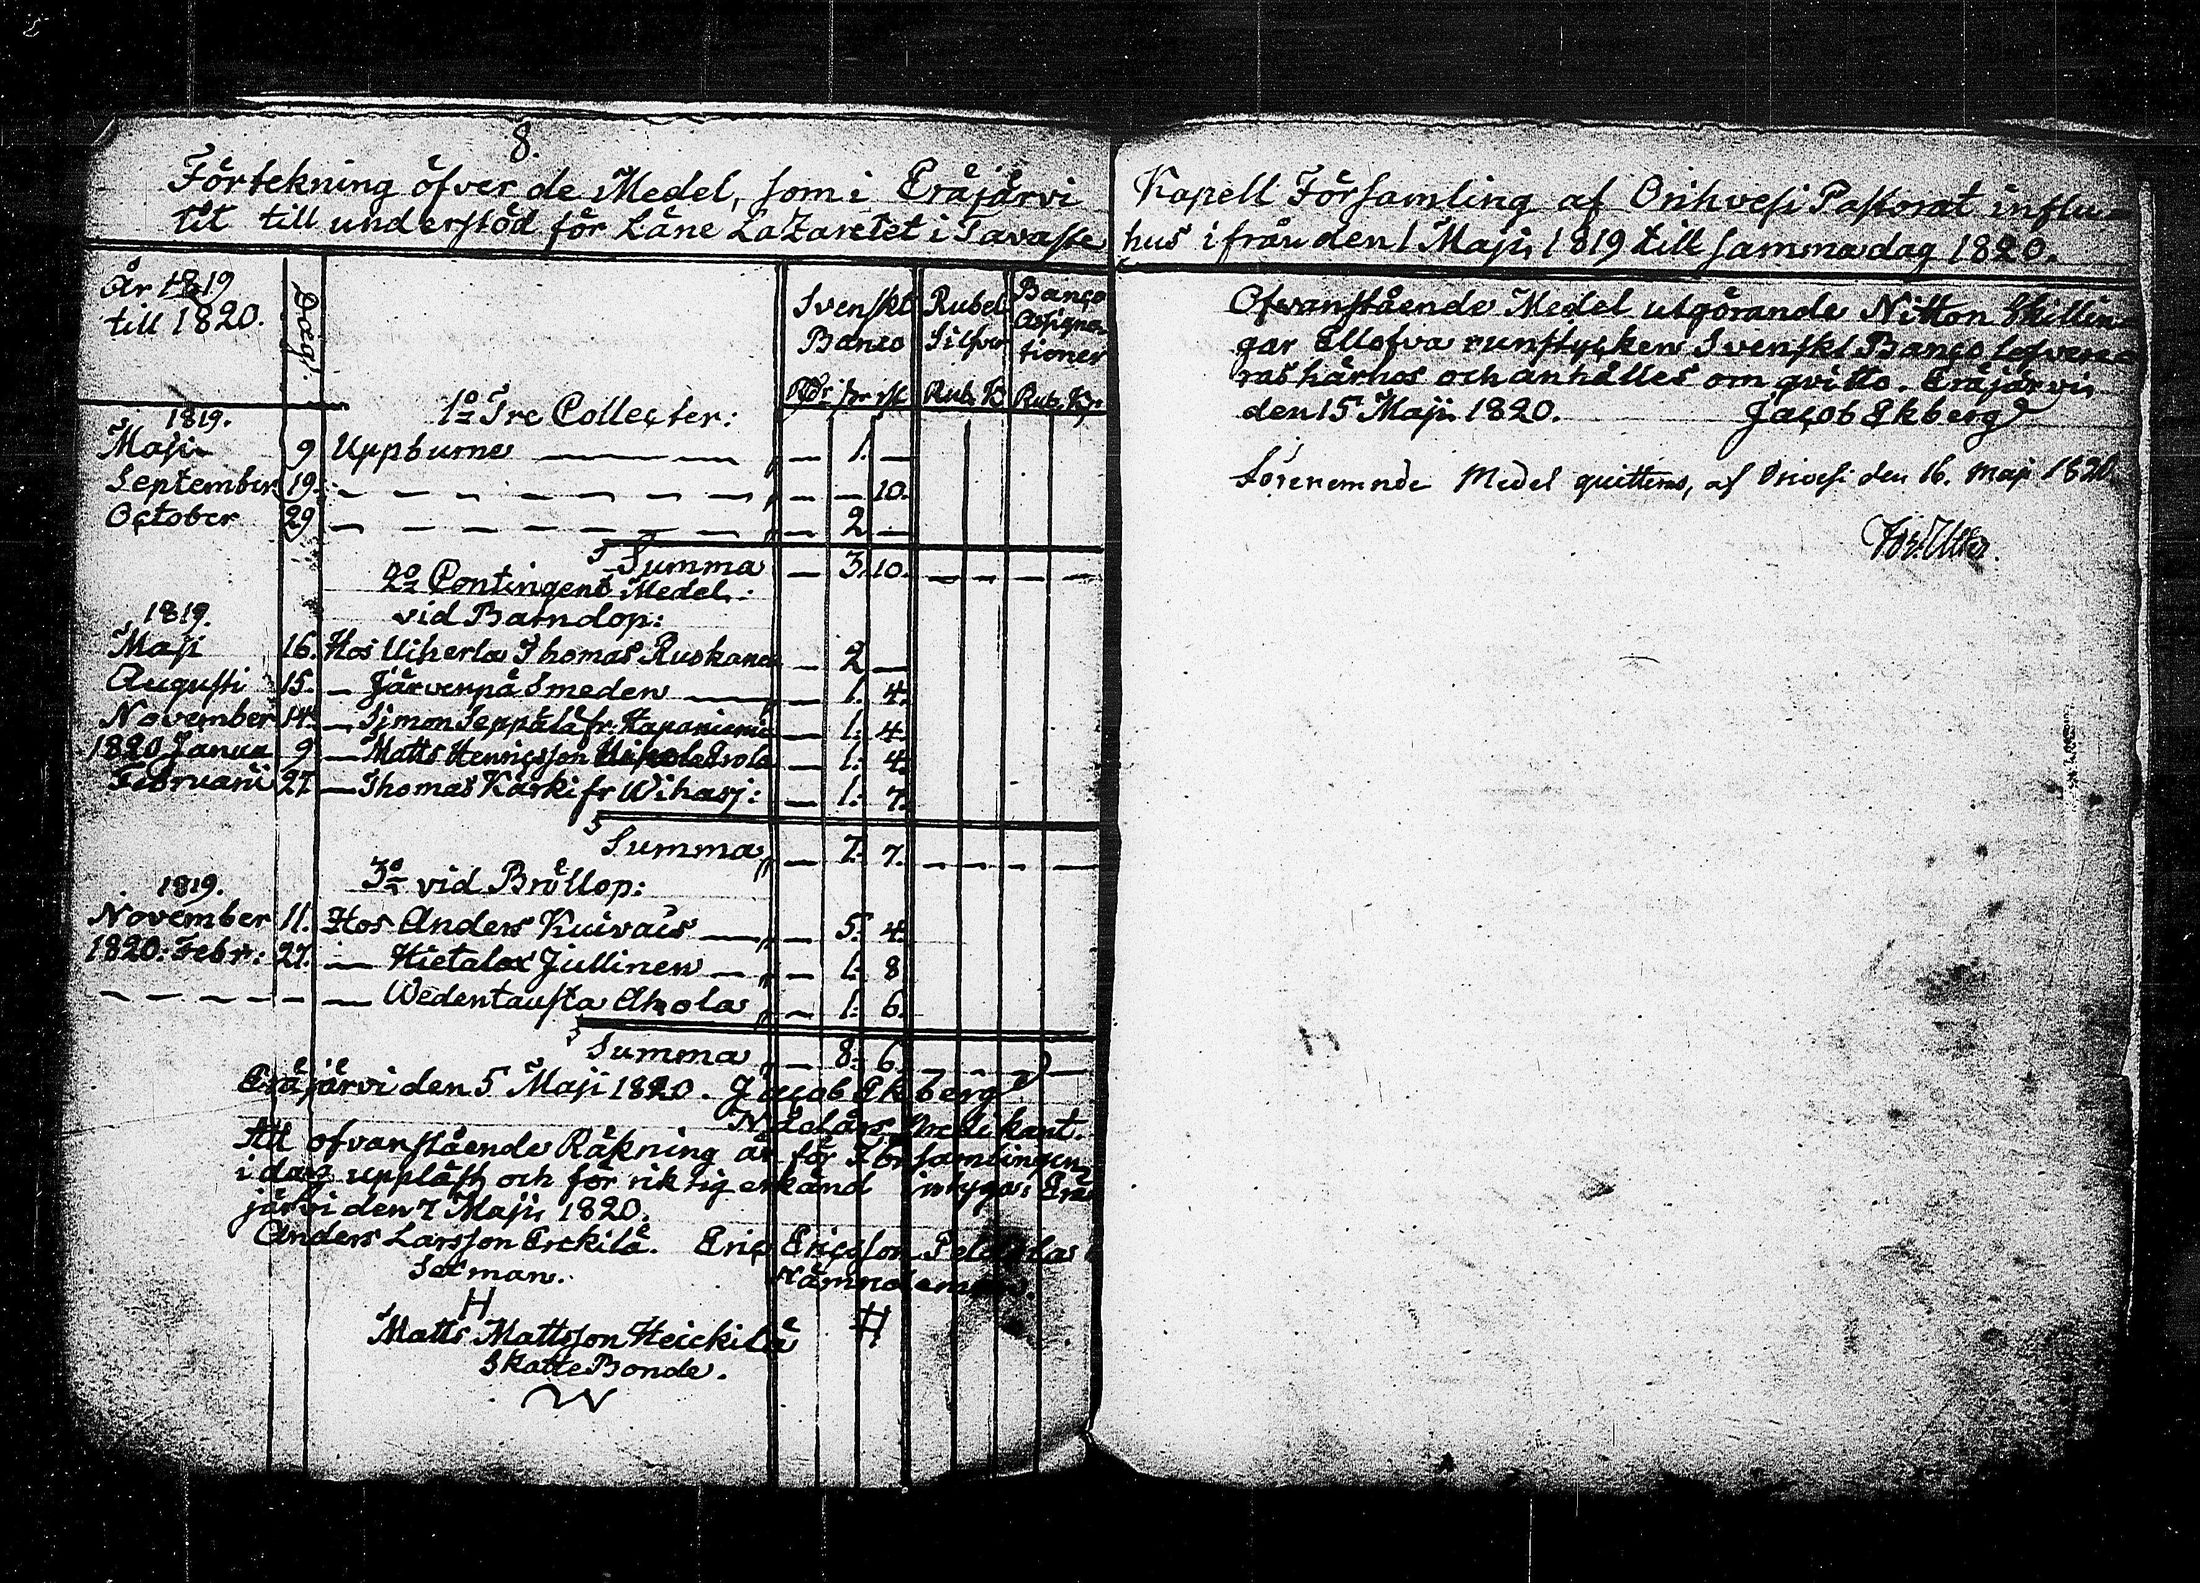 8.
Förtekning öfver de Medel, som i Eräjärvi Kapell Församling af Orihvesi Pastorat influ-
tit till understöd för Läne Lazaretet i Tavaste hus ifrån den 1 Maji 1819 till samma dag 1820.
År 1819
till 1820.
Dagr.
Svenskt Banco
Rubel Silfver
Banço Assigna-
tioner
Rdr sk rst
Rub. K
Rub. Kp.
1o Tre Collecter:
1819.
Maji 9 Uppburne — — — 1. —
September 19. — — — — — — — — — 10.
October 29 — — — — — — — — 2 —
Summa — 3. 10. — — — —
2o Contingent Medel
vid Barndop:
1819.
Maji 16. Hos Uiherla Thomas Ruokanen — 2 —
Augusti 15. — Järvenpä Smeden — — 1. 4.
November 14. — Simon Seppälä fr. Haponiemi — 1. 4.
1820 Janua 9 — Matts Henriçsson — 1. 4.
Februarii 27 — Thomas Kärki fr Wihasj: — 1. 7.
Summa — 7. 7. — — — —
3o vid Bröllop:
1819.
November 11. Hos Anders Kuivais — — 5. 4.
1820. Febr: 27. — Hietalax Jullinen — — 1. 8
— — — — — — — Wedentausta Ahola — 1. 6.
Summa — 8. 6. — — — —
Eräjärvi den 5 Maji 1820. Jacob Ekberg
Nådeårs Predikant.
Att ofvanstående Räkning är för Församlingen
i dag uppläst och för riktig erkänd intygar Erä
järvi den 7 Maji 1820.
Anders Larsson Erckilä. Eriç Eriçsson
Sexman. Nämndeman.
H #
Matts Mattsson Heickilä
Skatte Bonde.
W
Ofvanstående Medel utgörande Nitton Skillin-
gar Ellofva runstycken Svenskt Banço lefvere-
ras härhos och anhålles om qvitto. Eräjärvi
den 15 Maji 1820. Jaçob Ekberg
Förenemnde Medel quitteras, af Orivesi den 16. Maji 1820.